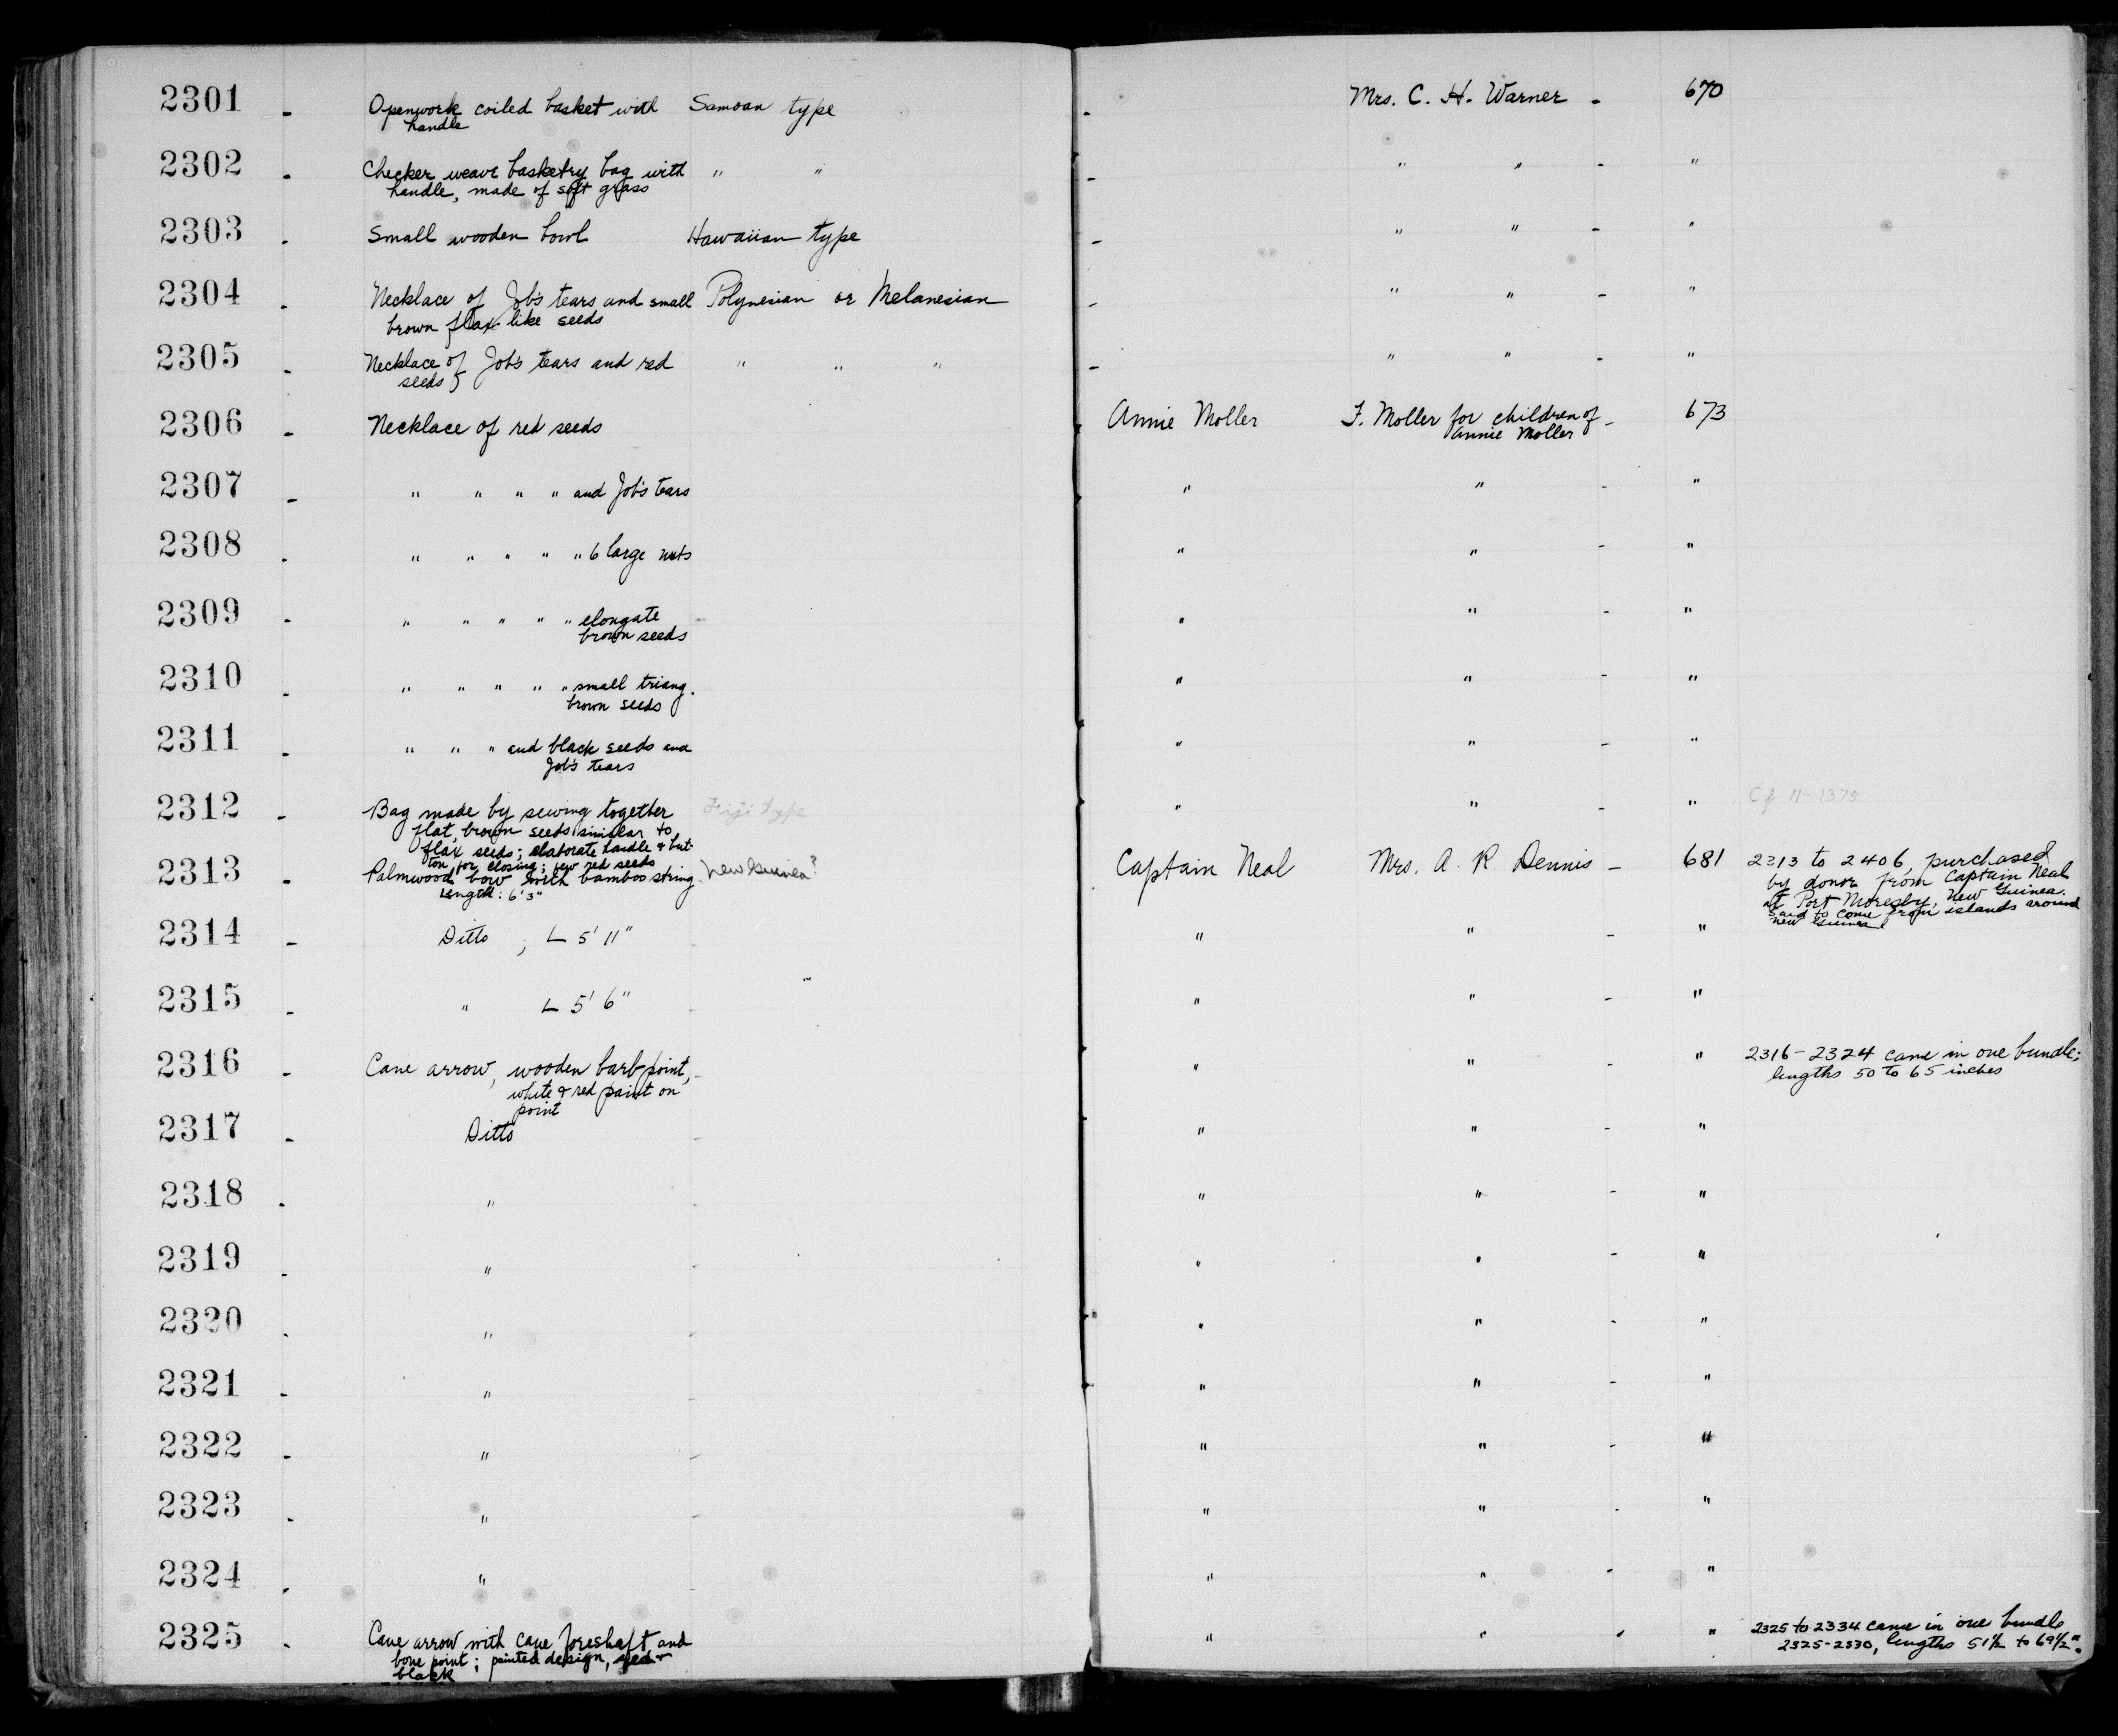 2301 - Openwork coiled basket with Samoan type - Mrs. C. H. Warner - 670
handle
2302 - Checker weave basketry bag with " " - " " - "
handle, made of soft grass
2303 - Small wooden bowl Hawaiian type - " " - "
2304 - Necklace of Job's tears and small Polynesian or Melanesian - " " - "
brown flax-like seeds
2305 - Necklace of Job's tears and red " " " - " " - "
seeds
2306 - Necklace of red seeds Annie Moller F. Moller for children of - 673
Annie Moller
2307 - " " " " and Job's tears " " - "
2308 - " " " " " 6 large nuts " " - "
2309 - " " " " " elongate " " - "
brown seeds
2310 - " " " " " small triang. " " - "
brown seeds
2311 - " " " and black seeds and " " - "
Job's tears
2312 - Bag made by sewing together Fiji type " " - " Cf 11-1375
flat, brown seeds similar to
flax seeds; elaborate handle & but-
ton for closing; few red seeds
2313 - Palmwood bow with bamboo string New Guinea? Captain Neal Mrs. A. R. Dennis - 681 2313 to 2406, purchased
Length: 6' 3"
by donor from Captain Neal
at Port Moresby, New Guinea.
Said to come from islands around
New Guinea
2314 - Ditto ; L 5' 11" " " - "
2315 - " L 5' 6" " " - "
2316 - Cane arrow, wooden barb point, - " " - " 2316-2324 came in one bundle;
white & red paint on
point
lengths 50 to 65 inches
2317 - Ditto - " " - "
2318 - " - " " - "
2319 - " - " " - "
2320 - " - " " - "
2321 - " - " " - "
2322 - " - " " - "
2323 - " - " " - "
2324 - " - " " - "
2325 - Cane arrow with cane foreshaft and " " - " 2325 to 2334 came in one bundle
bone point; painted design, red &
black
2325-2330, lengths 51 1/2 to 69 1/2".